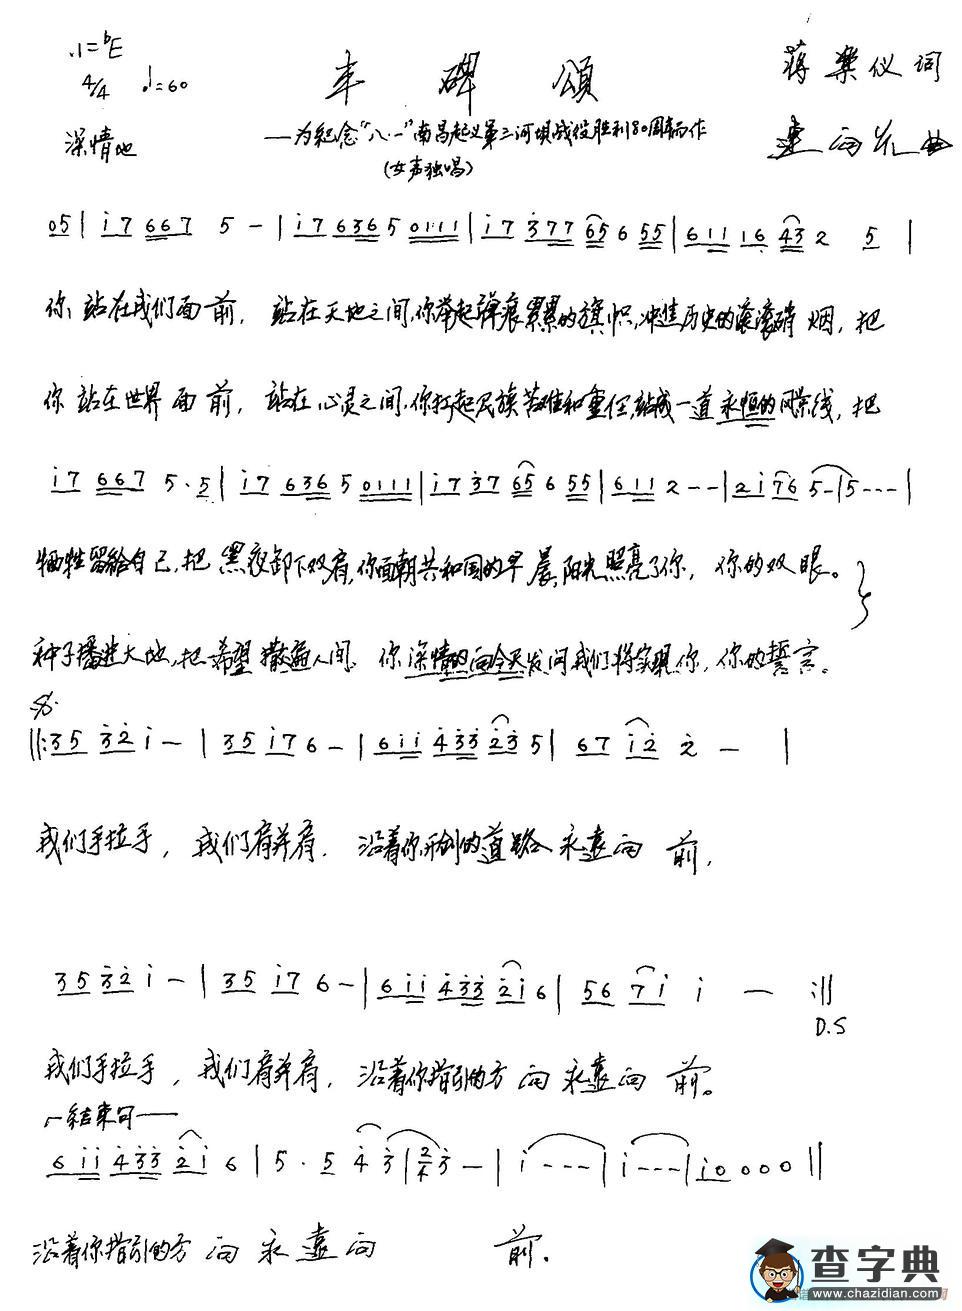 1=♭E
4/4 ♩=60
丰碑颂
蒋乐仪词
深情地
——为纪念“八·一”南昌起义第三河坝战役胜利80周年而作
(女声独唱)
曲
05|i7 667 5 -|i7 636 5 0111|i7 377 65 6 55|611 16 43 2 5|
你站在我们面前，站在天地之间,你举起弹痕累累的旗帜,冲焦历史的滚滚硝烟，把
你站在世界面前，站在心灵之间,你扛起民族苦难和重任,站成一道永恒的风景线，把
i7 667 5·5|i7 636 5 0111|i7 37 65 6 55|611 2 - -|2i 76 5 -|5 - - -|
牺牲留给自己,把黑夜卸下双肩,你面朝共和国的早晨,阳光照亮了你，你的双眼。
种子播进大地,把希望撒遍人间，你深情的向今天发问我们将实现你，你的誓言。
||:35 32 i -|35 i7 6 -|6ii 433 23 5|67 i2 2 -|
我们手拉手，我们肩并肩，沿着你开创的道路永远向前，
35 32 i -|35 i7 6 -|6ii 433 2i 6|56 7i i -:||
D.S
我们手拉手，我们肩并肩，沿着你指引的方向永远向前。
结束句
6ii 433 2i 6|5·5 4 3|2/4 3 -|i - - -|i - - -|i 0 0 0 0||
沿着你指引的方向永远向前.
查字典
www.chazidian.com